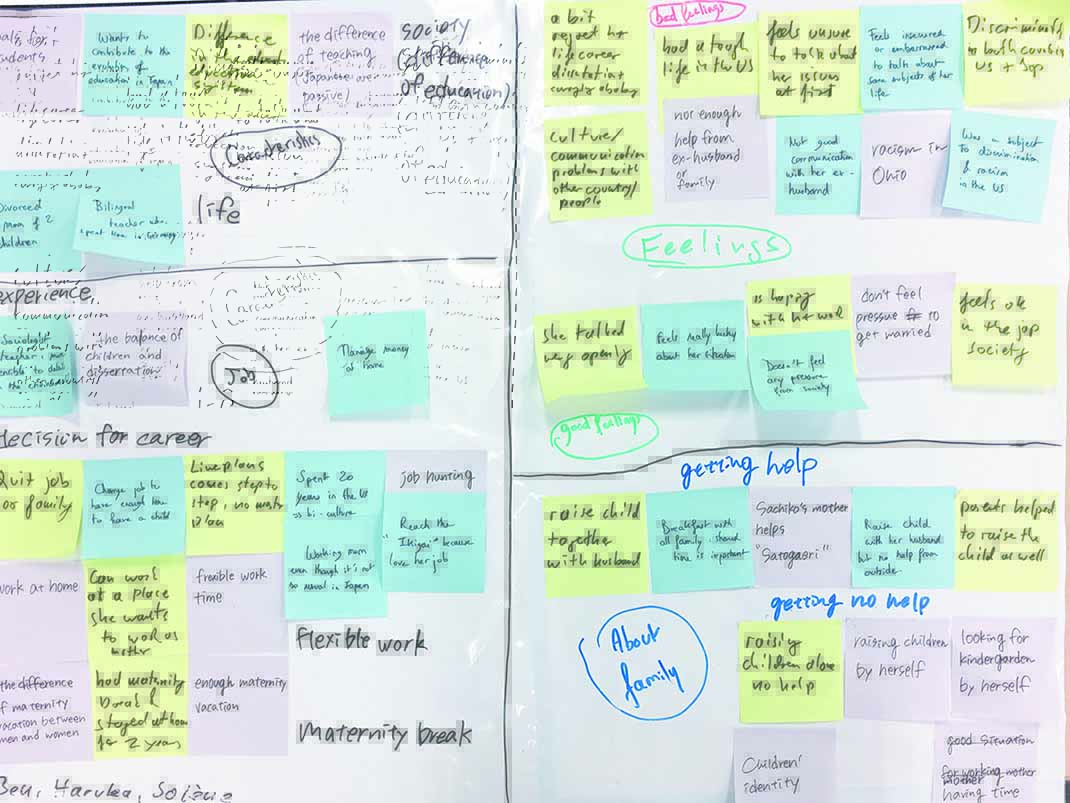 Wants to
contribute to the
evolution of
education in Japan!
Difference
in the
system
the difference
of teaching
(Japanese are
passive)
society
of education)
Characteristics
life
Divorced
mom of 2
children
Bilingual
teacher who
spent time in
experience
Sociologist
teacher
the balance of
children and
dissertation
Job
Manage money
at home
decision for career
Quit job
or family
Change job to
have enough time
to have a child
Lineplans
comes step to
step, no master
plan
Spent 20
years in the US
bi-culture
job hunting
Working mum
even though it's not
so usual in Japan
Reach the
"Ikigai" because
love her job
work at home
Can work
at a place
she wants
to work as
mother
frexible work
time
Flexible work
the difference
of maternity
vacation between
men and women
had maternity
break &
stayed at home
for 2 years
enough maternity
vacation
Maternity break
Ben, Haruka, Solène
bad feelings
a bit
regret her
life career
had a tough
life in the US
feels unsure
to talk about
her issues
at first
Feels insecured
or embarrassed
to talk about
some subjects of her
life
US + Jap
culture/
communication
problems with
other country/
people
not enough
help from
ex-husband
or family
Not good
communication
with her ex-
husband
racism in
Ohio
Was a subject
to discrimination
& racism
in the US
Feelings
she talked
very openly
Feels really lucky
about her situation
is happy
with her work
Doesn't feel
any pressure
from society
don't feel
pressure to
get warried
feels ok
in the jap
society
good feelings
getting help
raise child
together
with husband
Breakfast with
all family: shared
time is important
Sachiko's mother
helps
"Satogaeri"
Raise child
with her husband
but no help from
outside
parents helped
to raise the
child as well
getting no help
About
family
raising
children alone
no help
raising children
by herself
looking for
kindergarden
by herself
Children'
identity
good situation
for working mother
mother
having time